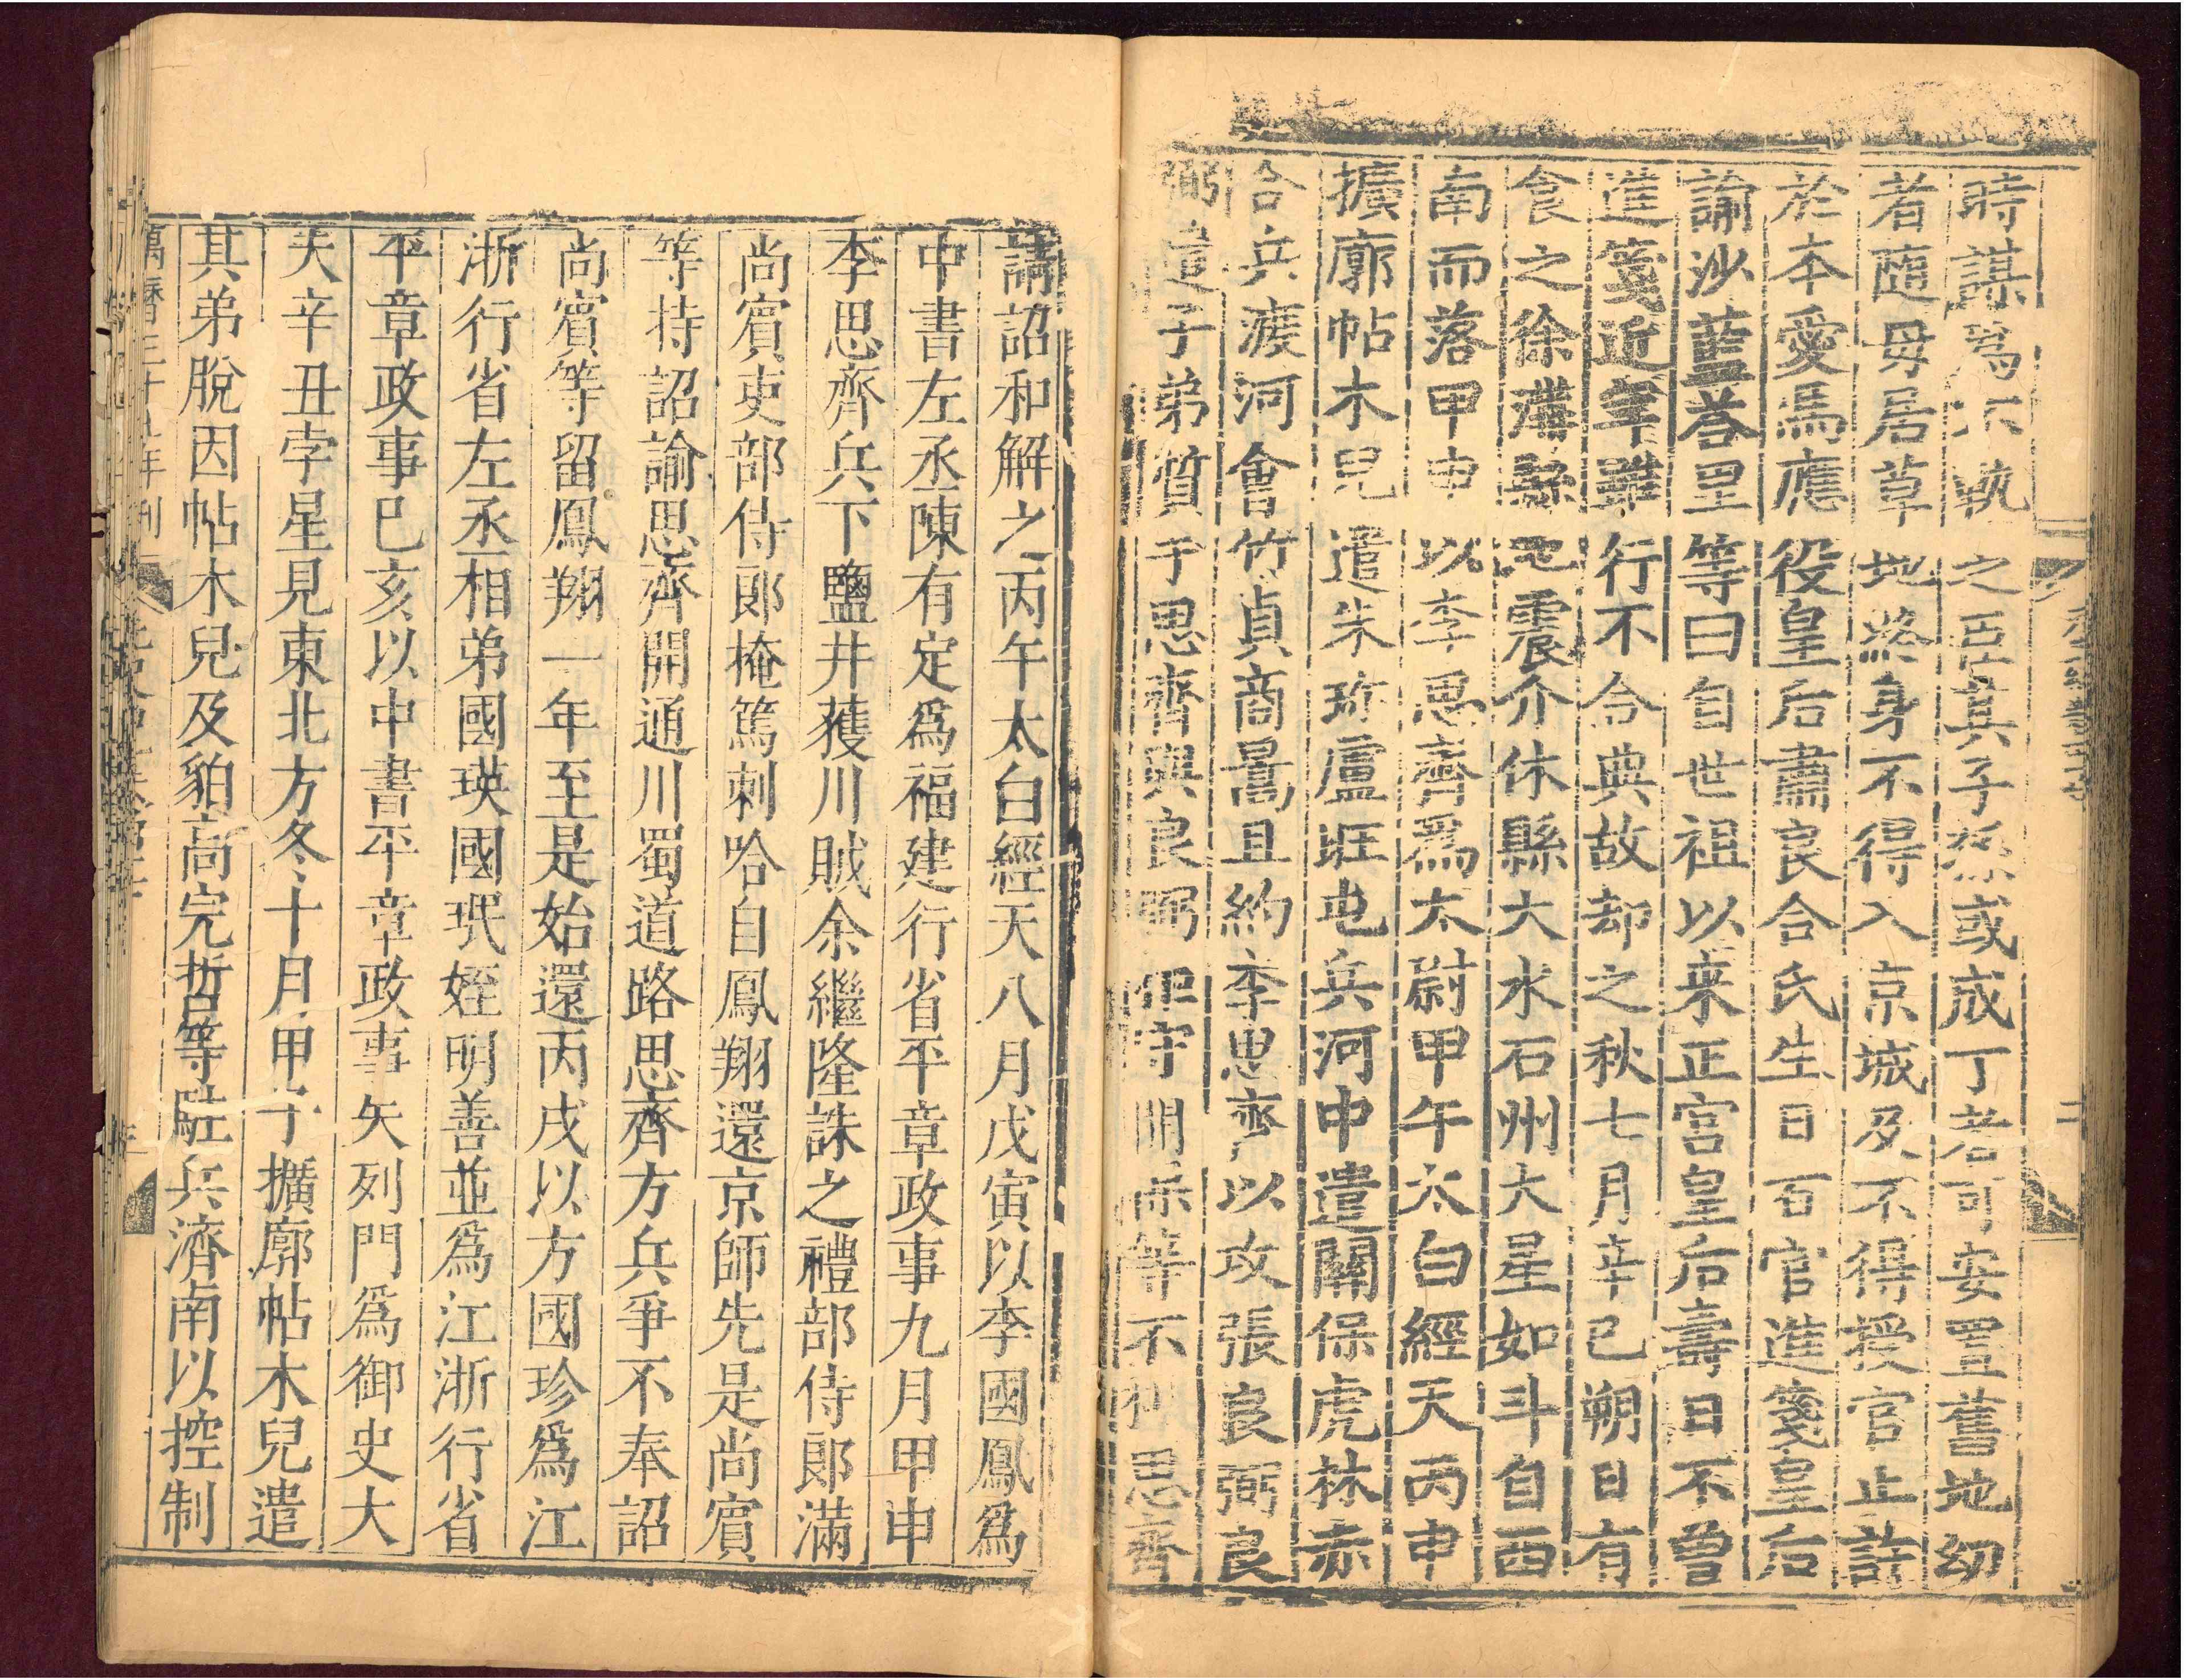 時謀爲不軌之臣其子孫或成丁者可安置舊地幼
者隨母居草地終身不得入京城及不得授官止許
於本愛馬應役皇后肅良合氏生日百官進箋皇后
諭沙藍荅里等曰自世祖以來正宮皇后壽日不曾
進箋近年雖行不合典故却之秋七月辛巳朔日有
食之徐溝縣地震介休縣大水石州大星如斗自西
南而落甲申以李思齊爲太尉甲午太白經天丙申
擴廓帖木兒遣朱珍盧旺屯兵河中遣關保虎林赤
合兵渡河會竹貞商暠且約李思齊以攻張良弼良
弼遣子弟質于思齊與良弼拒守關保等不利思齊
請詔和解之丙午太白經天八月戊寅以李國鳳爲
中書左丞陳有定爲福建行省平章政事九月甲申
李思齊兵下鹽井獲川賊余繼隆誅之禮部侍郞滿
尚賓吏部侍郞掩篤剌哈自鳳翔還京師先是尚賓
等持詔諭思齊開通川蜀道路思齊方兵爭不奉詔
尚賓等留鳳翔一年至是始還丙戌以方國珍爲江
浙行省左丞相弟國瑛國珉姪明善並爲江浙行省
平章政事巳亥以中書平章政事失列門爲御史大
夫辛丑孛星見東北方冬十月甲子擴廓帖木兒遣
其弟脫因帖木兒及貊高完哲等駐兵濟南以控制
萬曆三十 年刊